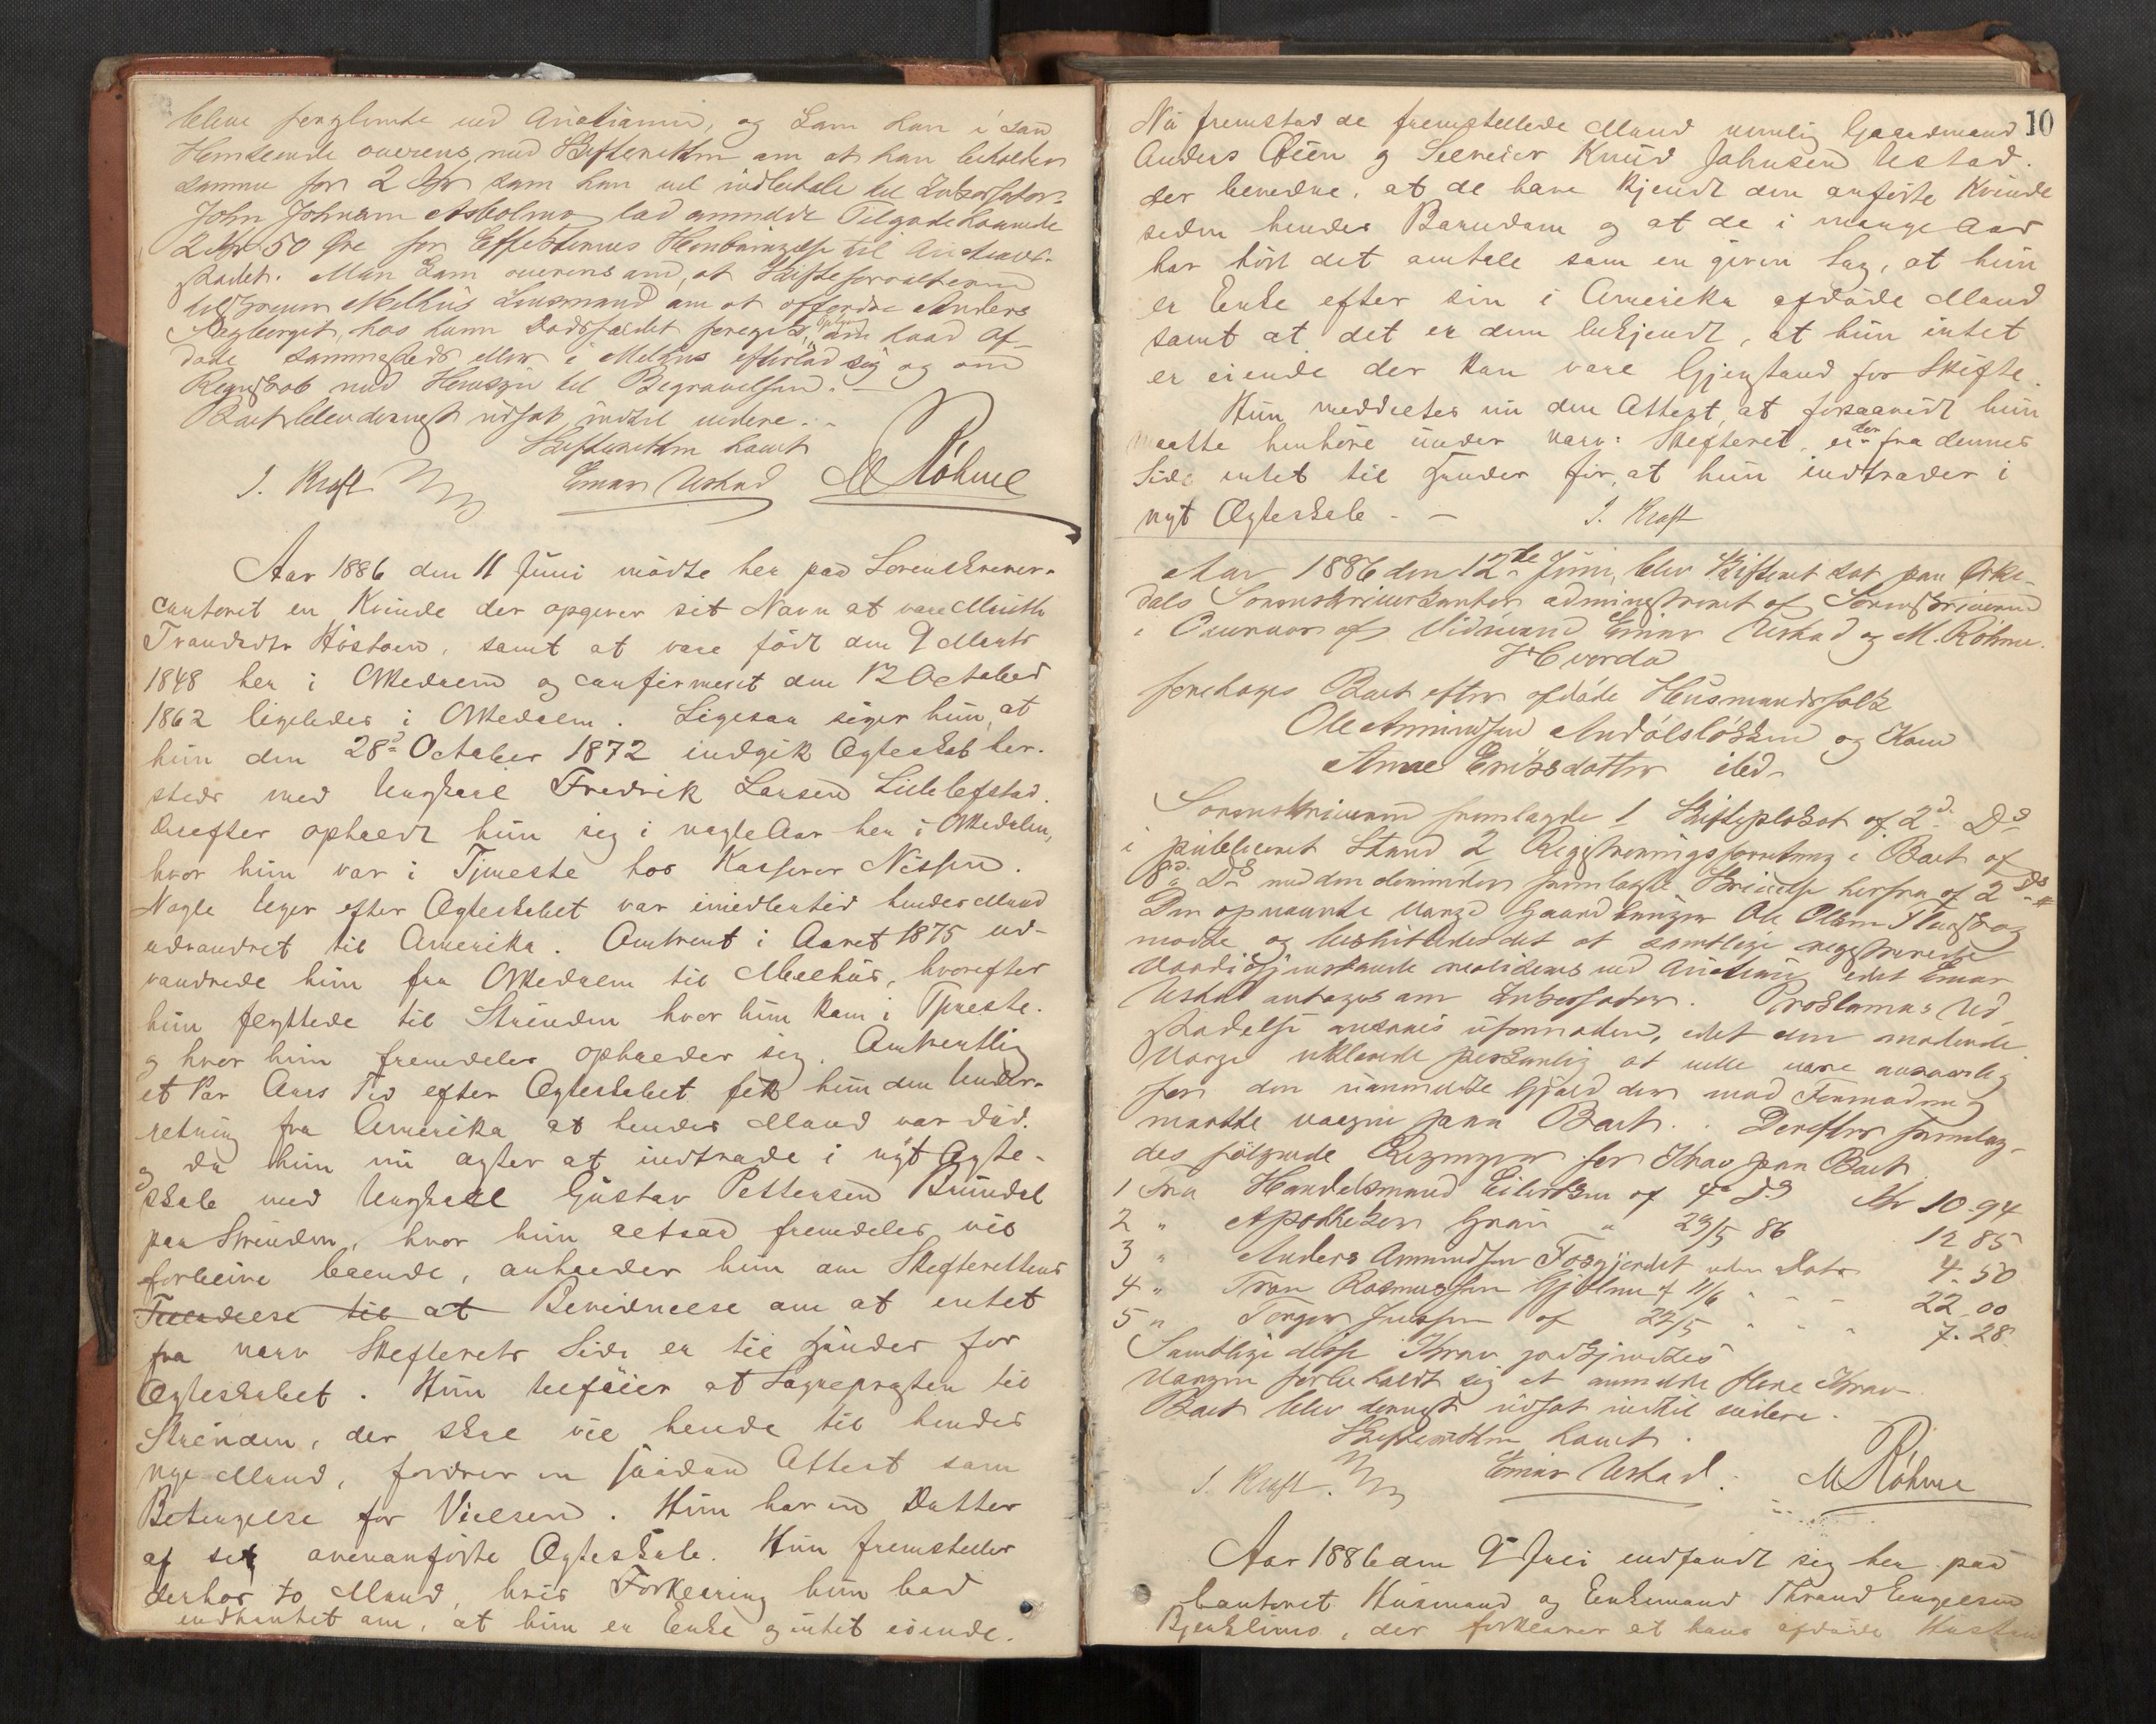 blive forglemte ved Auctionen, og kom han i saa
Henseende overens med Skifteretten om at han beholder
samme for 2 Kr som han vil indbetale til Inkassator
John Johnsen Asbolmo lod anmelde Tilgodehavende
2 Kr 50 Øre for Effekternes Henbringelse til Auctions-
stedet. Man kom overens om, at Skifteforvalteren
tilskriver Melhus Lensmand om at opfordre Anders
hos ham Dødsfaldet foregik, om hvad Af-
døde sammesteds eller i Melhus efterlod sig og om
Regnskab med Hensyn til Begravelsen. -
Boet blev dernæst udsat indtil videre. -
Skifteretten hævet
I. Kraft Einar Ustad M Røhme
Aar 1886 den 11 Juni mødte her paa Sorenskriver-
contoret en Kvinde der opgiver sit Navn at være Marith
Trondsdtr Høstoen, samt at være født den 9 Marts
1848 her i Meldalen og confirmeret den 12 October
1862 ligeledes i Meldalen. Ligesaa siger hun, at
hun den 28d October 1872 indgik Ægteskab her-
steds med Ungkarl Fredrik Larsen Lillelefstad.
Derefter opholdt hun sig i nogle Aar her i Meldalen,
hvor hun var i Tjeneste hos Kasserer Nissen.
Nogle Uger efter Ægteskabet var imidlertid hendes Mand
udvandret til Amerika. Omtrent i Aaret 1875 ud-
vandrede hun fra Meldalen til Melhus, hvorefter
hun flyttede til Strinden hvor hun kom i Tjeneste.
og hvor hun fremdeles opholder sig. Omtrentlig
et Par Aars Tid efter Ægteskabet fik hun den Under-
retning fra Amerika at hendes Mand var død.
og da hun nu agter at indtræde i nyt Ægte-
skab med Ungkarl Gustav Pettersen Brundal
paa Strinden, hvor hun altsaa fremdeles vil
forblive boende, anholder hun om Skifterettens
Tilladelse til at Bevidnelse om at intet
fra nærv Skifterets Side er til Hinder for
Ægteskabet. Hun tilføier at Sognepresten til
Strinden, der skal vie hende til hendes
nye Mand, fordrer en saadan Attest som
Betingelse for Vielsen. Hun har en Datter
af sit ovenanførte Ægteskab. Hun fremstiller
derhos to Mænd, hvis Forklaring hun bad
indhentet om, at hun er Enke og intet eiende.
10
Nu fremstod de fremstillede Mænd nemlig Gaardmand
Anders Øien og Selveier Knud Johnsen Ustad.
der bevidne, at de have kjendt den anførte Kvinde
siden hendes Barndom og at de i mange Aar
har hørt det omtale som en given Sag, at hun
er Enke efter sin i Amerika afdøde Mand
samt at det er dem bekjendt, at hun intet
er eiende der kan være Gjenstand for Skifte.
Hun meddeltes nu den Attest, at forsaavidt hun
maatte henhøre under nærv: Skifteret, er der fra dennes
Side intet til Hinder for, at hun indtræder i
nyt Ægteskab. - I. Kraft
Aar 1886 den 12te Juni, blev Skifteret sat paa Orke-
dals Sorenskriverkontor administreret af Sorenskriveren
i Overvær af Vidnerne Einar Uskad og M. Røhme.
Hvorda
foretoges Boet efter afdøde Husmandsfolk
Ole Amundsen Andølsløkken og Kone
Anne Eriksdatter ibid-
Sorenskriveren fremlagde 1 Skifteplakat af 2d Ds
i publiceret Stand 2 Registreringsforretning i Boet af
8d. Ds med den derunder fremlagte Skrivelse herfra af 2 Ds
Den opnævnte Værge Gaardbruger Ole Olsen
mødte og besluttedes det at samtlige registrerede
Værdigjenstande realiseres ved Auction, idet Einar
Uskad antages om Inkassator. Proklamas Ud-
stædelse ansaaes ufornøden, idet den mødende
Værge erklærede personlig at ville være ansvarlig
for den uanmeldte Gjæld der mod Formodning
maatte paa Boet. Derefter fremlag-
des følgende Regninger for Krav paa Boet
1 Fra Handelsmand Eilertsen af 4d Ds Kr 10.94
2 " Apotheker Grøn " 29/5 86 12 85
3 " Anders Amundsen Fosgjerdet uden Dato 4.50
4 " Tron Rasmussen Gjølme af 11/6 " - - 22.00
5 " Torger Julssen af 22/5 " " " 7.28
Samtlige disse Krav godkjendtes
Værgen forbeholdt sig at anmelde flere Krav
Boet blev dernæst udsat indtil videre.
Skifteretten hævet.
I. Kraft. Einar Uskad. M Røhme
Aar 1886 den 9 Juli indfandt sig her paa
Contoret Husmand og Enkemand Thrond Engelsen
Bjenklimo, der forklarer at hans afdøde Hustru